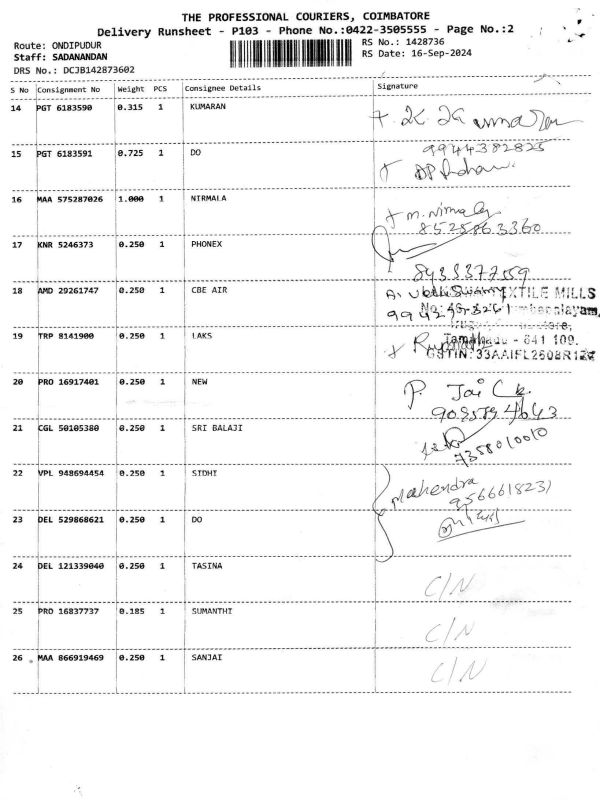 THE PROFESSIONAL COURIERS, COIMBATORE
Delivery Runsheet - P103 - Phone No.:0422-3505555 - Page No.:2
Route: ONDIPUDUR
Staff: SADANANDAN
DRS No.: DCJB142873602
RS No.: 1428736
RS Date: 16-Sep-2024
S No Consignment No Weight PCS Consignee Details Signature
14 PGT 6183590 0.315 1 KUMARAN
9944382825
15 PGT 6183591 0.725 1 DO
16 MAA 575287026 1.000 1 NIRMALA
m. Nirmala
8525863360
17 KNR 5246373 0.250 1 PHONEX
18 AMD 29261747 0.250 1 CBE AIR
TEXTILE MILLS
19 TRP 8141900 0.250 1 LAKS
Tamilnadu - 641 109.
GSTIN: 33AAIFL2608R1ZC
20 PRO 16917401 0.250 1 NEW
P. Jai
21 CGL 50105380 0.250 1 SRI BALAJI
7358010010
22 VPL 948694454 0.250 1 SIDHI
Mahendra
9566618231
23 DEL 529868621 0.250 1 DO
24 DEL 121339040 0.250 1 TASINA
C/N
25 PRO 16837737 0.185 1 SUMANTHI
C/N
26 MAA 866919469 0.250 1 SANJAI
C/N